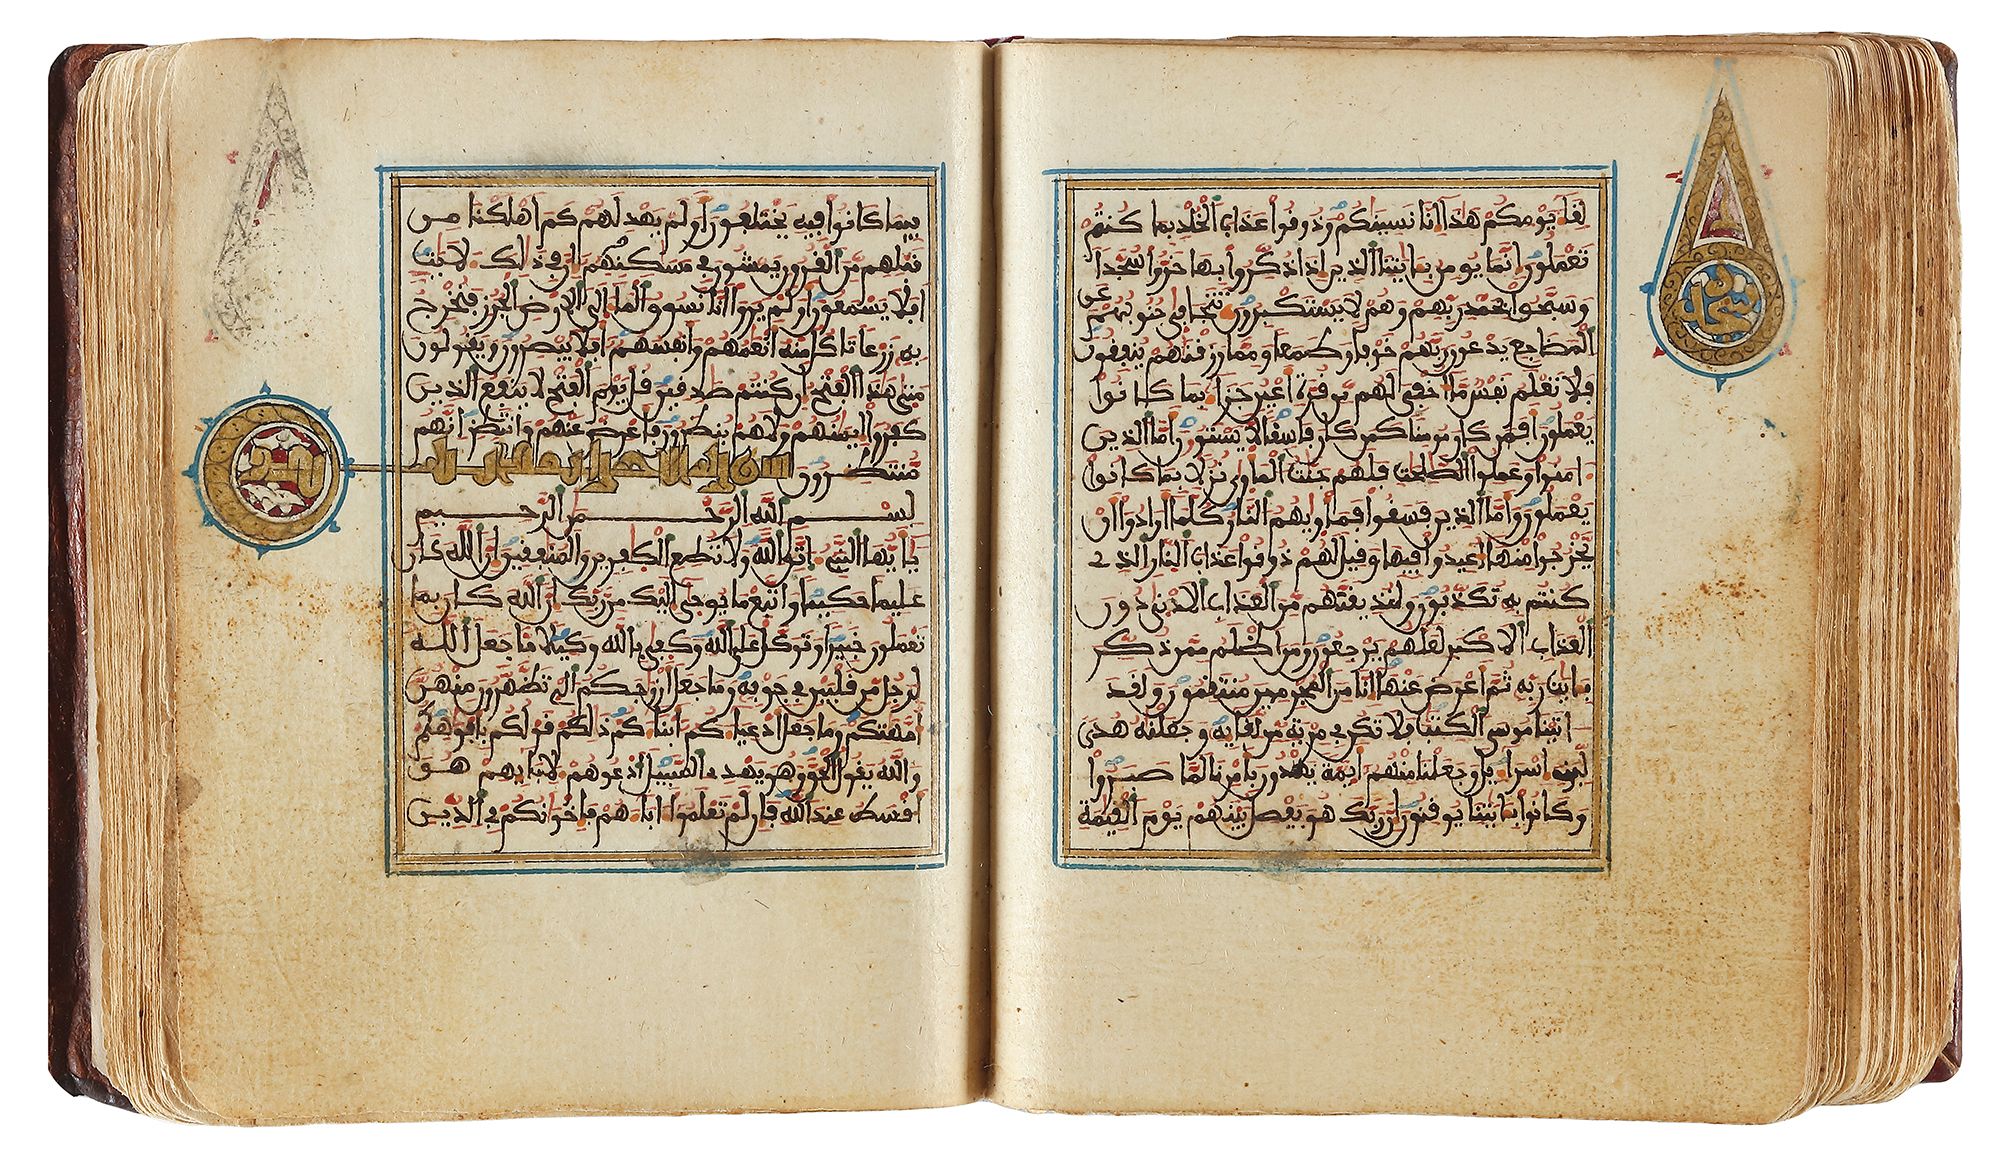 لقا يومكم هذا انا نسينكم وذوقوا عذاب الخلد بما كنتم
تعملون انما يومن بايتنا الذين اذا ذكروا بها خروا سجدا
وسبحوا بحمد ربهم وهم لا يستكبرون تتجافى جنوبهم عن
المضاجع يدعون ربهم خوفا وطمعا ومما رزقنهم ينفقون
فلا تعلم نفس ما اخفي لهم من قرة اعين جزا بما كانوا
يعملون افمن كان مومنا كمن كان فاسقا لا يستون اما الذين
امنوا وعملوا الصلحت فلهم جنت الماوى نزلا بما كانوا
يعملون واما الذين فسقوا فماويهم النار كلما ارادوا ان
يخرجوا منها اعيدوا فيها وقيل لهم ذوقوا عذاب النار الذي
كنتم به تكذبون ولنذيقنهم من العذاب الادنى دون
العذاب الاكبر لعلهم يرجعون ومن اظلم ممن ذكر
بايت ربه ثم اعرض عنها انا من المجرمين منتقمون ولقد
اتينا موسى الكتب فلا تكن في مرية من لقايه وجعلنه هدى
لبني اسرايل وجعلنا منهم ايمة يهدون بامرنا لما صبروا
وكانوا بايتنا يوقنون ان ربك هو يفصل بينهم يوم القيمة
سجدة
فيما كانوا فيه يختلفون اولم يهد لهم كم اهلكنا من
قبلهم من القرون يمشون في مسكنهم ان في ذلك لايت
افلا يسمعون اولم يروا انا نسوق الما الى الارض الجرز فنخرج
به زرعا تاكل منه انعمهم وانفسهم افلا يبصرون ويقولون
متى هذا الفتح ان كنتم صدقين قل يوم الفتح لا ينفع الذين
كفروا ايمنهم ولا هم ينظرون فاعرض عنهم وانتظر انهم
منتظرون
سورة الاحزاب
بسم الله الرحمن الرحيم
يايها النبي اتق الله ولا تطع الكفرين والمنفقين ان الله كان
عليما حكيما واتبع ما يوحى اليك من ربك ان الله كان بما
تعملون خبيرا وتوكل على الله وكفى بالله وكيلا ما جعل الله
لرجل من قلبين في جوفه وما جعل ازوجكم الي تظهرون منهن
امهتكم وما جعل ادعياكم ابناكم ذلكم قولكم بافوهكم
والله يقول الحق وهو يهدي السبيل ادعوهم لابايهم هو
اقسط عند الله فان لم تعلموا اباهم فاخوانكم في الدين